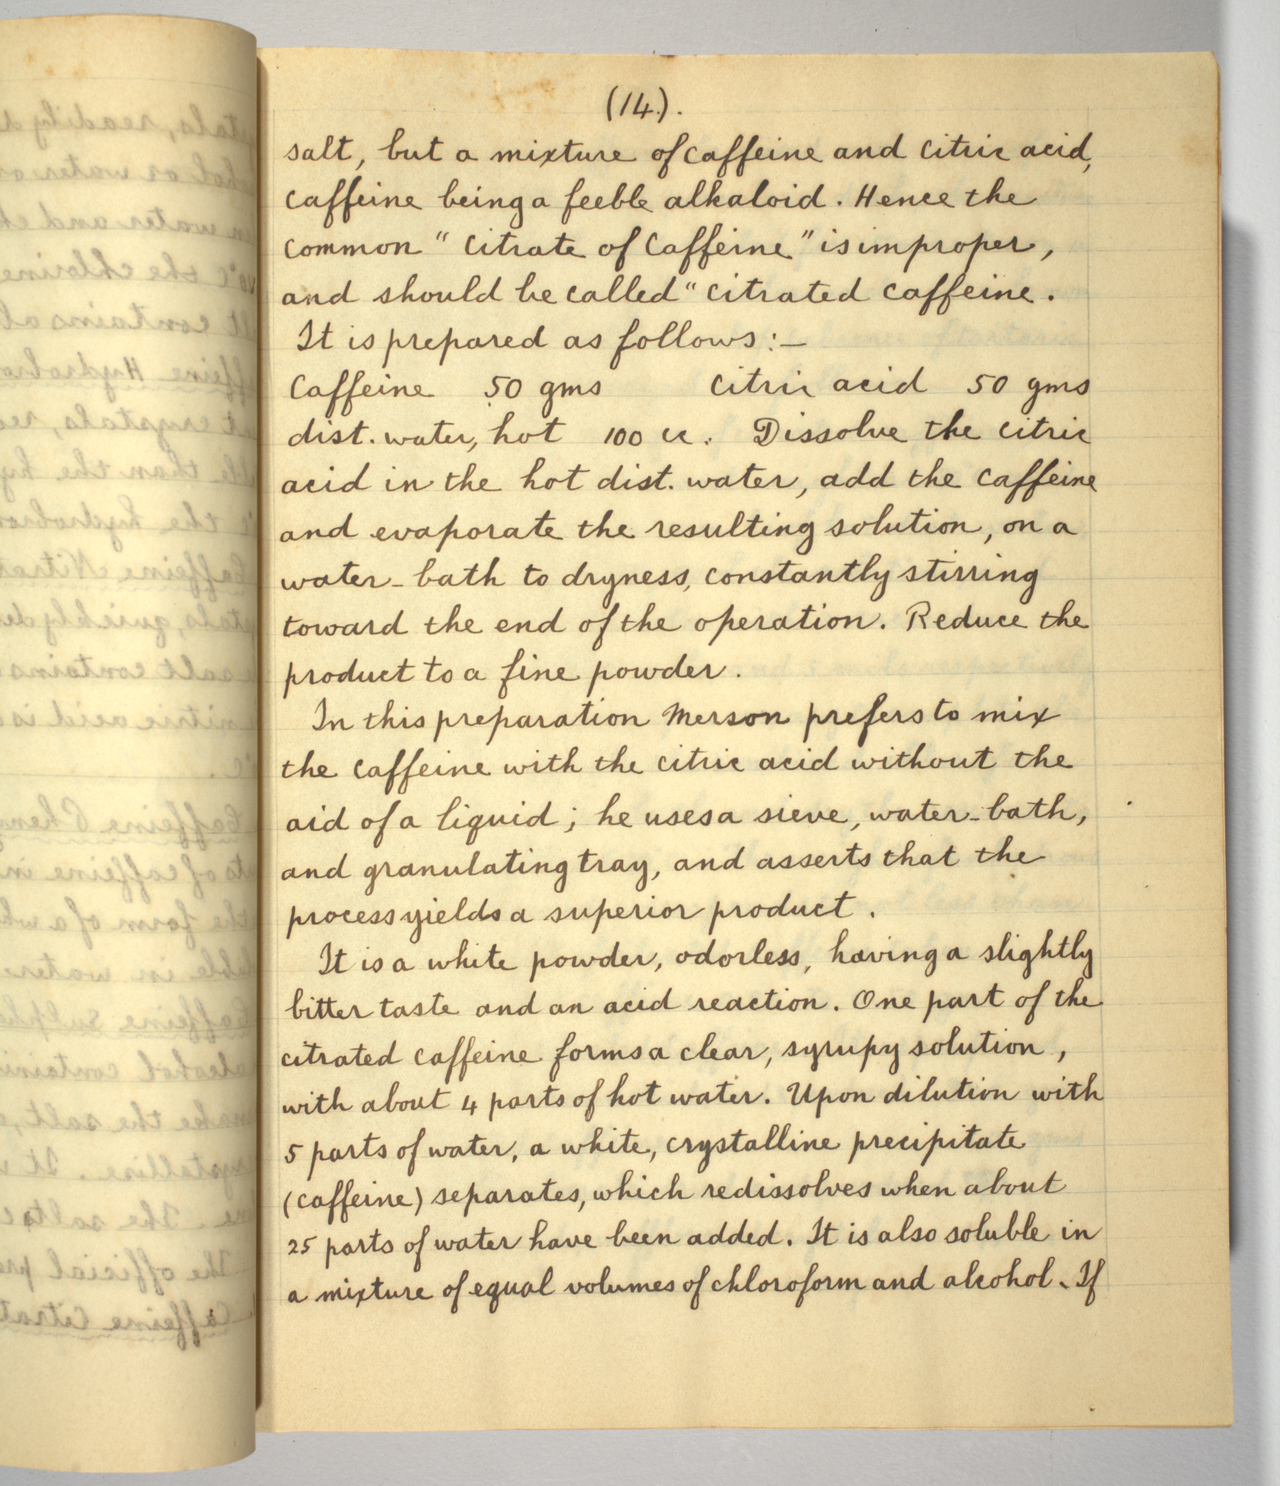 (14).
salt, but a mixture of caffeine and citric acid,
caffeine being a feeble alkaloid. Hence the
common "citrate of caffeine" is improper,
and should be called "citrated caffeine.
It is prepared as follows:—
Caffeine 50 gms citric acid 50 gms
dist. water, hot 100 cc. Dissolve the citric
acid in the hot dist. water, add the caffeine
and evaporate the resulting solution, on a
water-bath to dryness, constantly stirring
toward the end of the operation. Reduce the
product to a fine powder.
In this preparation Merson prefers to mix
the caffeine with the citric acid without the
aid of a liquid; he uses a sieve, water-bath,
and granulating tray, and asserts that the
process yields a superior product.
It is a white powder, odorless, having a slightly
bitter taste and an acid reaction. One part of the
citrated caffeine forms a clear, syrupy solution,
with about 4 parts of hot water. Upon dilution with
5 parts of water, a white, crystalline precipitate
(caffeine) separates, which redissolves when about
25 parts of water have been added. It is also soluble in
a mixture of equal volumes of chloroform and alcohol. If